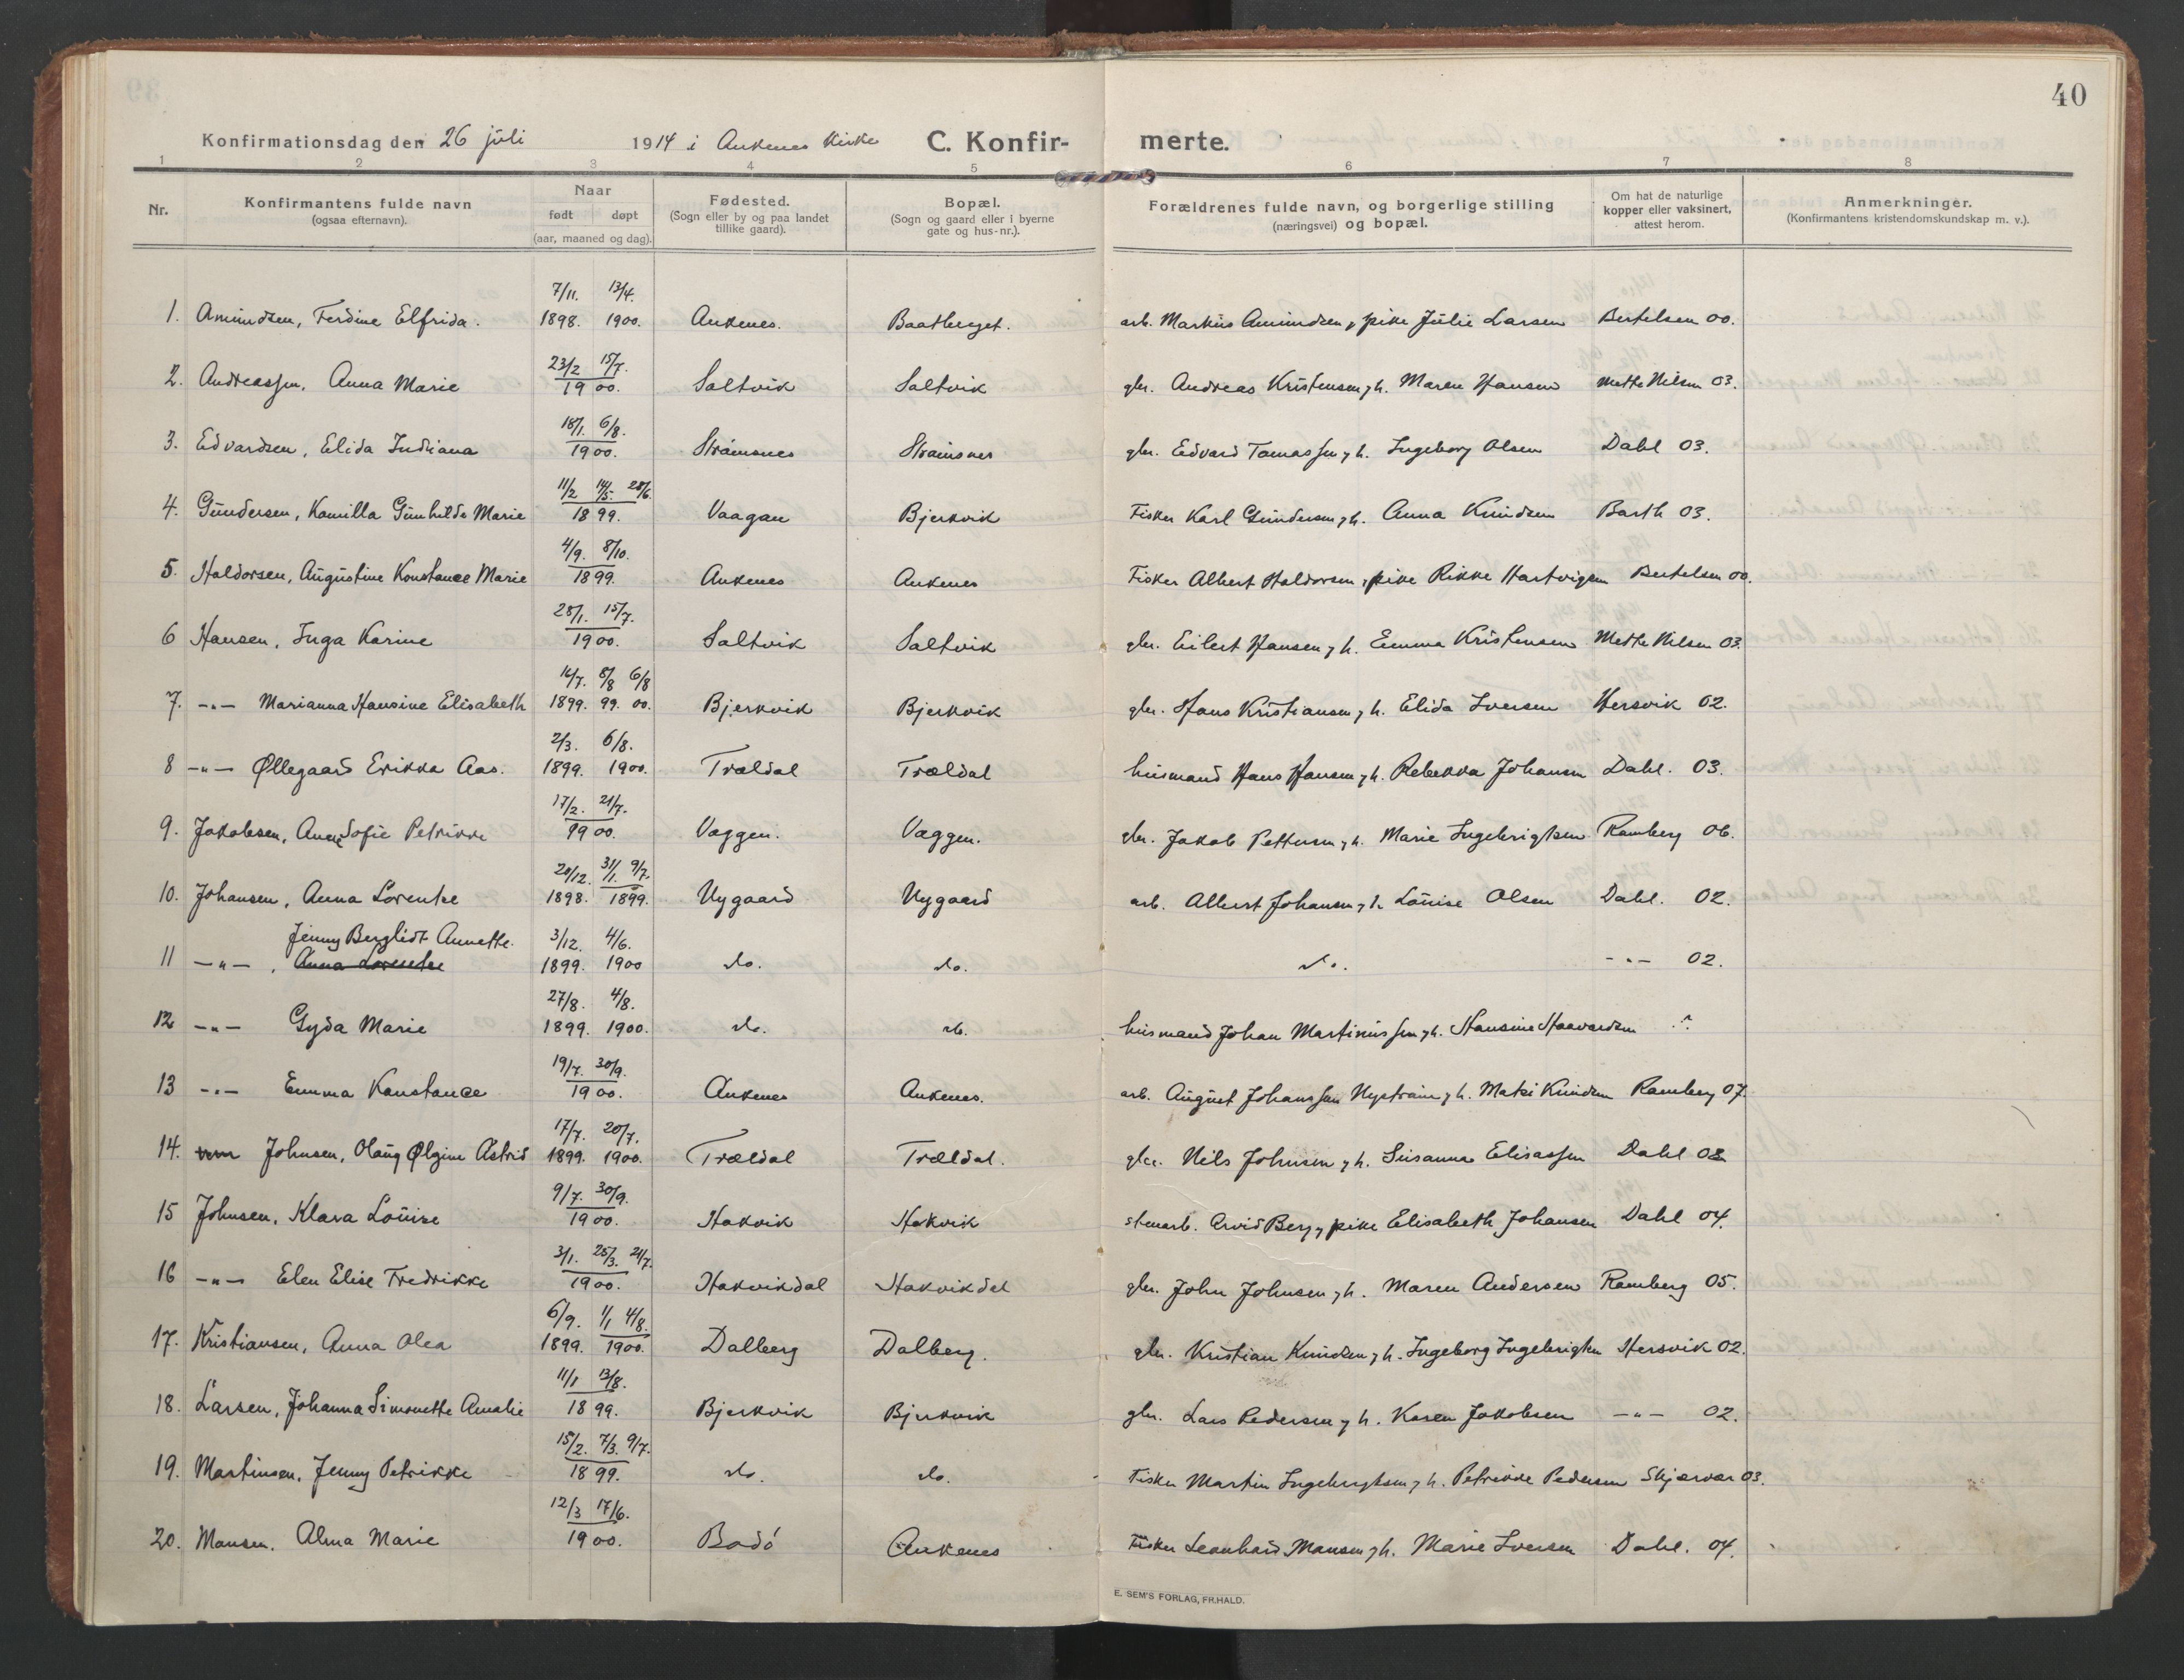 40
Konfirmationsdag den 26 juli 1914 i Ankenes Kirke C. Konfir- merte.
1 2 3 4 5 6 7 8
Nr. Konfirmantens fulde navn (ogsaa efternavn). Naar født døpt (aar, maaned og dag). Fødested. (Sogn eller by og paa landet tillike gaard). Bopæl. (Sogn og gaard eller i byerne gate og hus-nr.). Forældrenes fulde navn, og borgerlige stilling (næringsvei) og bopæl. Om hat de naturlige kopper eller vaksinert, attest herom. Anmerkninger. (Konfirmantens kristendomskundskap m. v.).
7/11. 13/4.
1. Amundsen, Ferdine Elfrida. 1898. 1900. Ankenes. Baatberget. arb. Markus Amundsen, pike Julie Larsen Bertelsen 00.
23/2 15/7.
2. Andreassen, Anna Marie 1900. Saltvik Saltvik gbr. Andreas Kristensen, h. Maren Hansen Mette Nilsen 03.
18/1. 6/8.
3. Edvardsen, Elida Indiana 1900. Straumsnes Straumsnes gbr. Edvard Tomassen, h. Ingeborg Olsen Dahl 03.
11/2 14/5. 28/6.
4. Gundersen, Kamilla Gunhilde Marie 1899. Vaagan Bjerkvik Fisker Karl Gundersen, h. Anna Knudsen Barth 03.
4/9. 8/10.
5. Haldorsen, Augustine Konstance Marie 1899. Ankenes Ankenes Fisker Albert Haldorsen, pike Rikke Hartvigsen Bertelsen 00.
28/1. 15/7.
6 Hansen, Inga Karine 1900. Saltvik Saltvik gbr. Eilert Hansen, h. Emma Kristensen Mette Nilsen 03.
16/7. 8/8 6/8
7. -"- Marianna Hansine Elisabeth 1899. 99. 00. Bjerkvik Bjerkvik gbr. Hans Kristiansen, h. Elida Iversen Hersvik 02.
2/3. 6/8.
8 -"- Øllegaard Erikka Aas. 1899. 1900. Trældal Trældal husmand Hans Hansen, h. Rebekka Johansen Dahl. 03.
17/2. 21/7.
9. Jakobsen, Anne Sofie Petrikke 1900. Væggen. Væggen. gbr. Jakob Pettersen, h. Marie Ingebrigtsen Ramberg 06.
20/12. 31/1. 9/7.
10. Johansen, Anna Lorentse 1898. 1899. Nygaard Nygaard arb. Albert Johansen, h. Louise Olsen Dahl. 02.
Jenny Berglidt Annette. 3/12. 4/6.
11 -"-, Anna Lorentse 1899. 1900 do. do. do. -"- 02.
27/8. 4/8.
12 -"- Gyda Marie 1899. 1900. do. do. husmand Johan Martinussen, h. Hansine Haavardsen
19/7. 30/9.
13 -"- Emma Konstance 1900. Ankenes Ankenes. arb. August Johanssen Nystrøm, h. Matzi Knudsen Ramberg 07.
17/7. 20/7.
14. Johnsen, Olaug Ølgine Astrid 1899. 1900. Trældal Trældal. gbr. Nils Johnsen, h. Susanna Eliassen Dahl 02
9/7. 30/9.
15 Johnsen, Klara Louise 1900. Hakvik Hakvik stenarb. Arvid Berg, pike Elisabeth Johansen Dahl 04.
3/1. 25/3. 21/7.
16 -"- Elen Elise Fredrikke 1900. Hakvikdal Hakvikdal gbr. John Johnsen, h. Maren Andersen Ramberg 05.
6/9. 1/1 4/8.
17. Kristiansen, Anna Olea 1899. 1900. Dalberg Dalberg. gbr. Kristian Knudsen, h. Ingeborg Ingebrigtsen Hersvik 02.
11/1 13/8.
18. Larsen, Johanna Simonette Amalie 1899. Bjerkvik Bjerkvik gbr. Lars Pedersen, h. Karen Jakobsen -"- 02.
15/2. 7/3. 9/7.
19. Martinsen, Jenny Petrikke 1899. do. do. Fisker Martin Ingebrigtsen, h. Petrikke Pedersen Skjærvær 03.
12/3 17/6.
20. Monsen, Alma Marie 1900. Bodö Ankenes Fisker Leonhard Monsen, h. Marie Iversen Dahl. 04.
E. SEM'S FORLAG, FR.HALD.